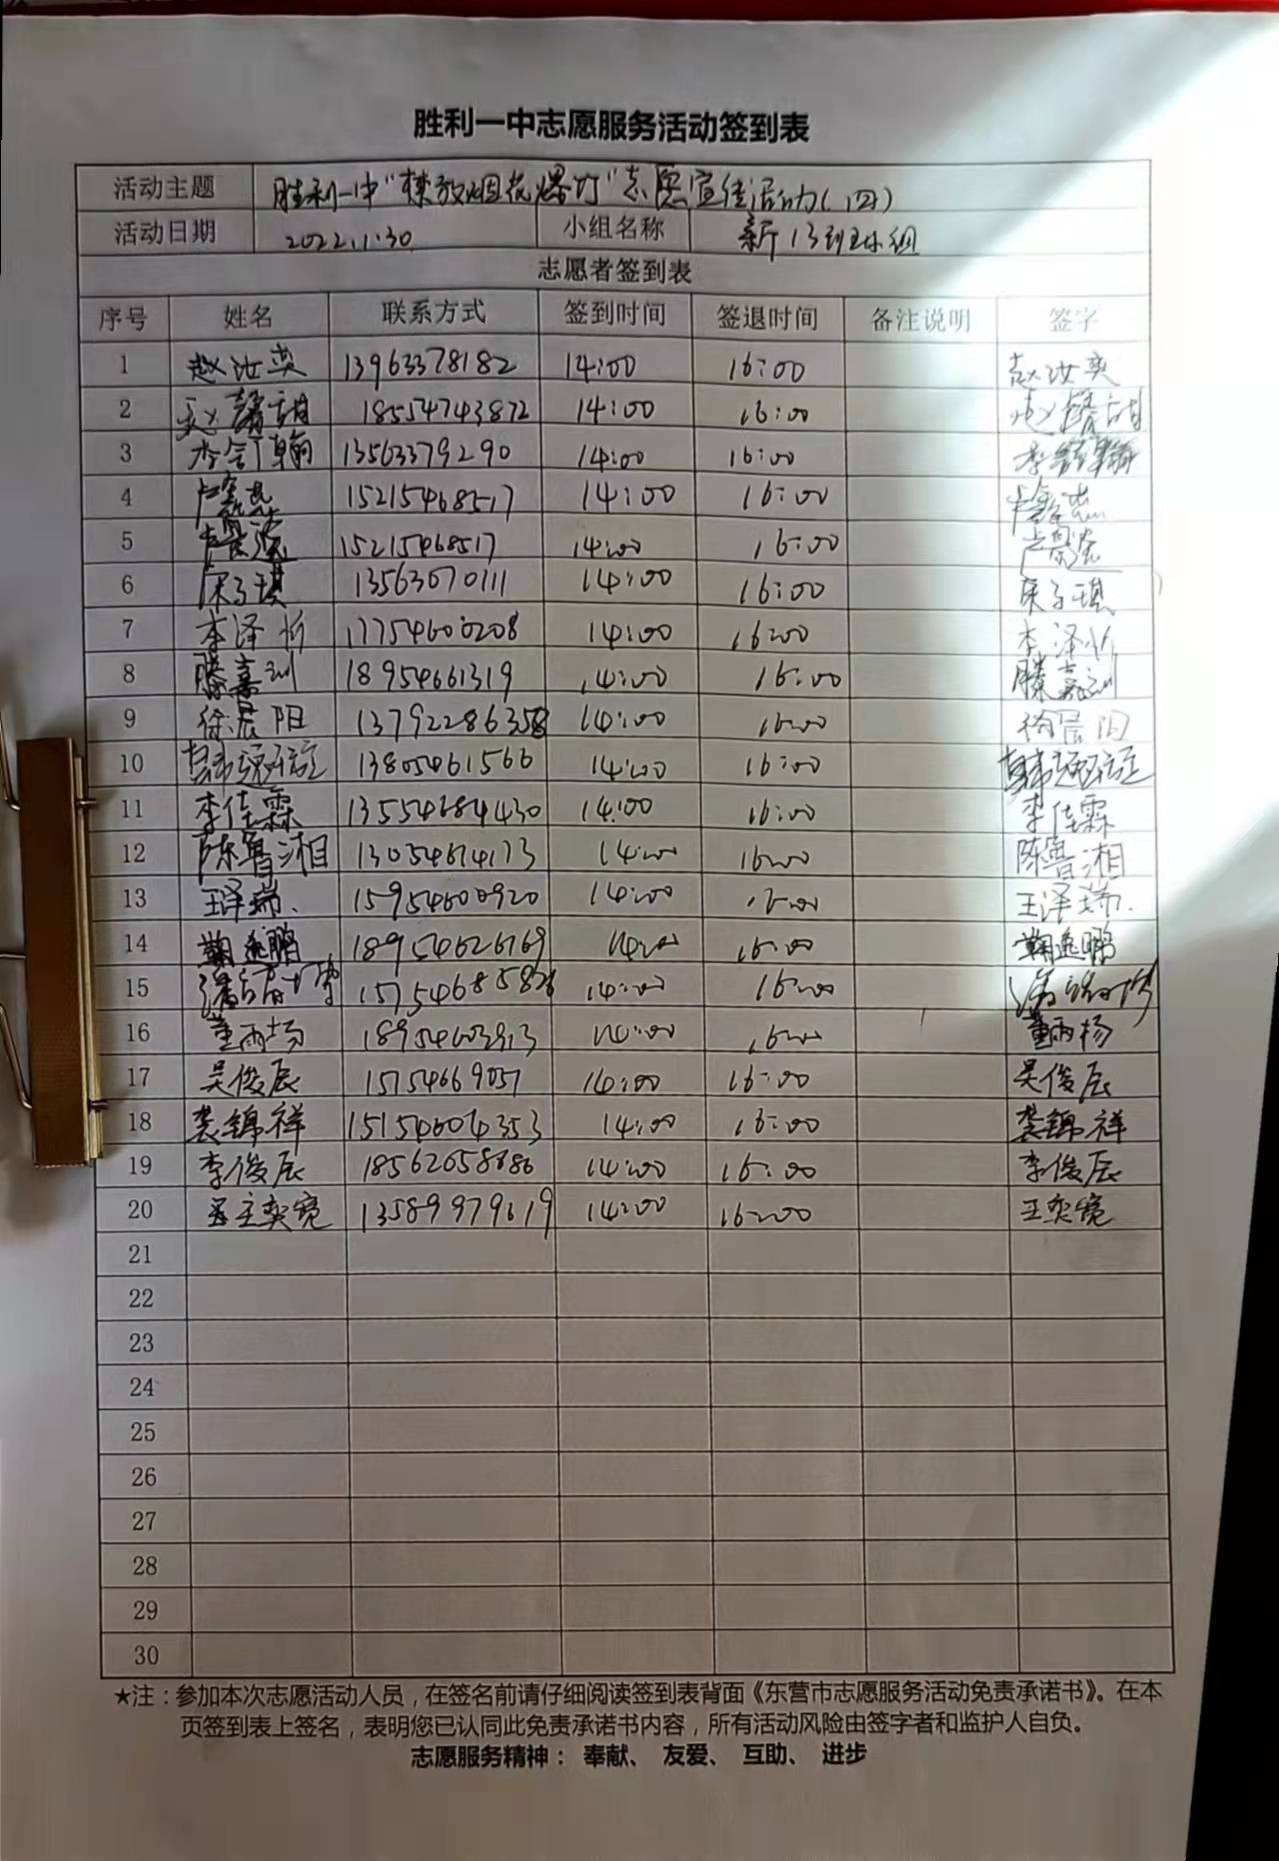 胜利一中志愿服务活动签到表
活动主题 胜利一中"禁放烟花爆竹"志愿宣传活动(四)
活动日期 2022.1.30 小组名称 新13班 组
志愿者签到表
序号 姓名 联系方式 签到时间 签退时间 备注说明 签字
1 赵汝奕 13963378182 14:00 16:00 赵汝奕
2 赵馨甜 18554743872 14:00 16:00 赵馨甜
3 李 翰 13563379290 14:00 16:00 李 翰
4 15215468517 14:00 16:00
5 15215468517 14:00 16:00
6 子琪 13563070111 14:00 16:00 子琪
7 李泽昕 17754600208 14:00 16:00 李泽昕
8 滕嘉 18954661319 14:00 16:00 滕嘉
9 徐晨阳 13792286358 14:00 16:00 徐晨阳
10 韩 13805461566 14:00 16:00 韩
11 李佳霖 13554684430 14:00 16:00 李佳霖
12 陈鲁湘 13054674173 14:00 16:00 陈鲁湘
13 王泽瑞. 15954600920 14:00 16:00 王泽瑞.
14 鞠逸鹏 18954626769 14:00 16:00 鞠逸鹏
15 14:00 16:00
16 董雨杨 18954603913 14:00 16:00 董雨杨
17 吴俊辰 15754669057 14:00 16:00 吴俊辰
18 龚锦祥 151546004353 14:00 16:00 龚锦祥
19 李俊辰 18562058686 14:00 16:00 李俊辰
20 王奕宽 13589979619 14:00 16:00 王奕宽
21
22
23
24
25
26
27
28
29
30
★注：参加本次志愿活动人员，在签名前请仔细阅读签到表背面《东营市志愿服务活动免责承诺书》。在本
页签到表上签名，表明您已认同此免责承诺书内容，所有活动风险由签字者和监护人自负。
志愿服务精神： 奉献、 友爱、 互助、 进步